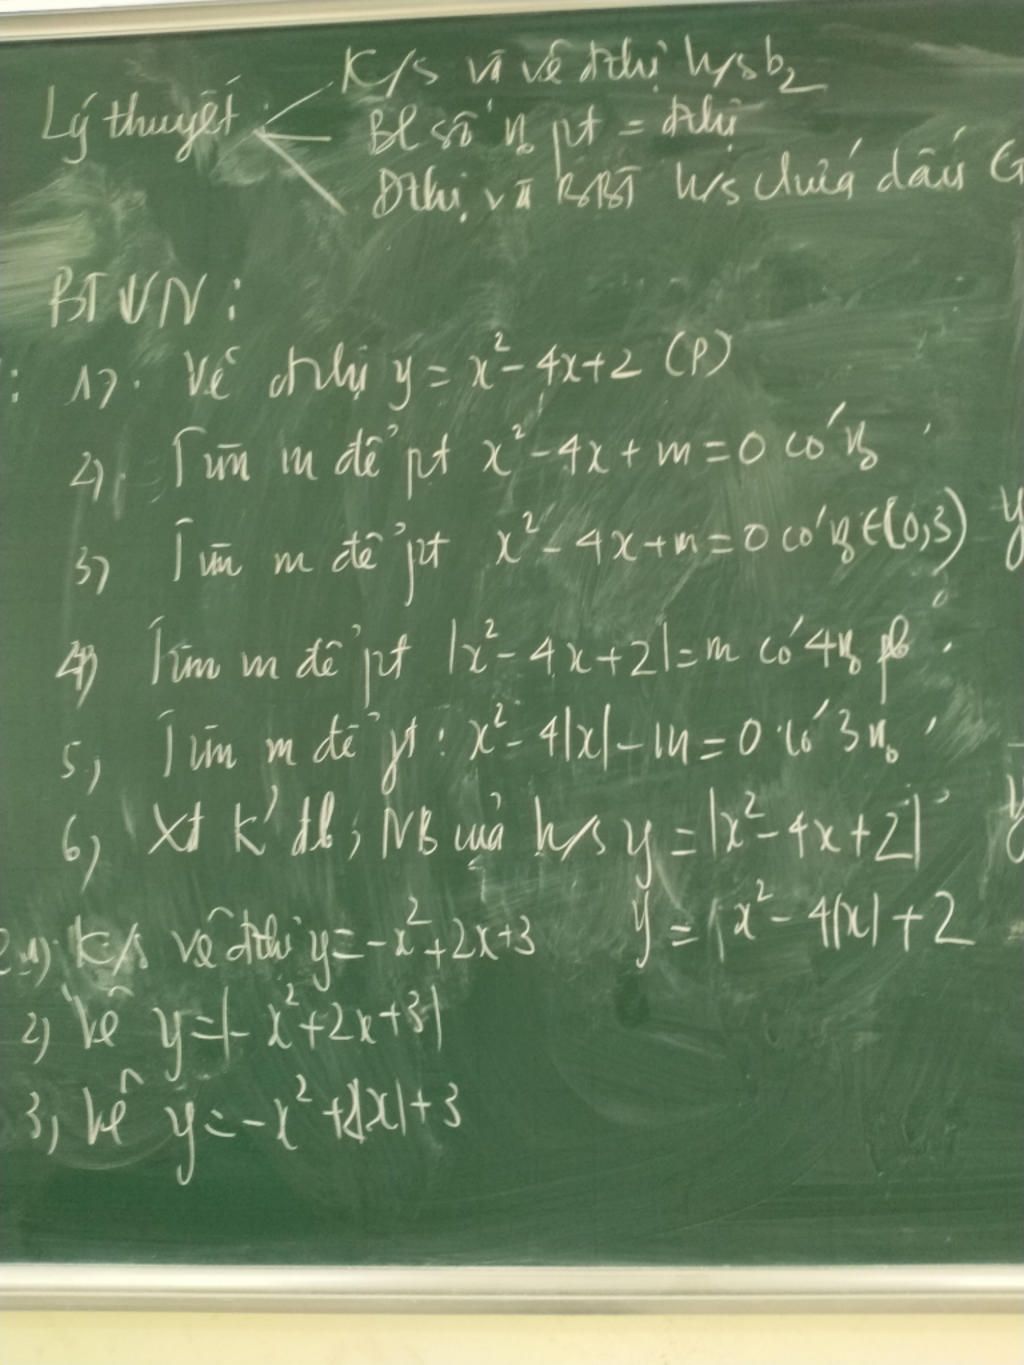 K/s và vẽ đthị h/s b2
Lý thuyết
BL số n0 pt = đthị
Đthị và BBT h/s chứa dấu G
BTVN:
: 1). Vẽ đthị y = x² - 4x + 2 (P)
2). Tìm m để pt x² - 4x + m = 0 có n0
3) Tìm m để pt x² - 4x + m = 0 có n0 ∈ (0;3) y
4) Tìm m để pt |x² - 4x + 2| = m có 4 n0 pb
5) Tìm m để pt: x² - 4|x| - m = 0 có 3 n0
6) Xđ K' đb, NB của h/s y = |x² - 4x + 2| y
y = x² - 4|x| + 2
2. 1) K/s vẽ đthị y = -x² + 2x + 3
2) Vẽ y = |-x² + 2x + 3|
3) Vẽ y = -x² + 2|x| + 3